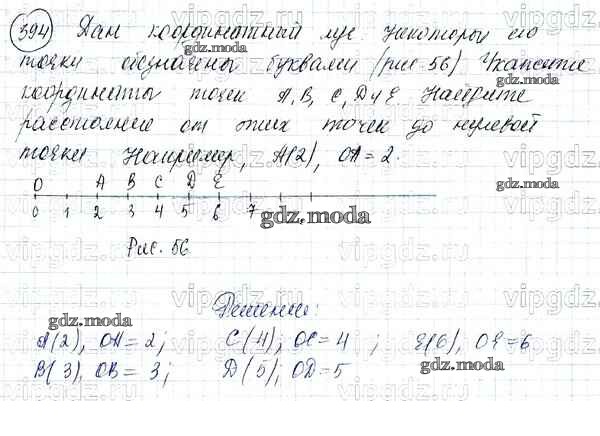 394 Дан координатный луч Некоторые его
точки обозначены буквами (рис 56) Укажите
координаты точек A, B, C, D и E Найдите
расстояние от этих точек до нулевой
точки Например, A(2), OA = 2.
O A B C D E
0 1 2 3 4 5 6 7
Рис. 56
Решение:
A(2), OA = 2; C(4); OC = 4 ; E(6), OE = 6
B(3), OB = 3; D(5); OD = 5
gdz.moda
vipgdz